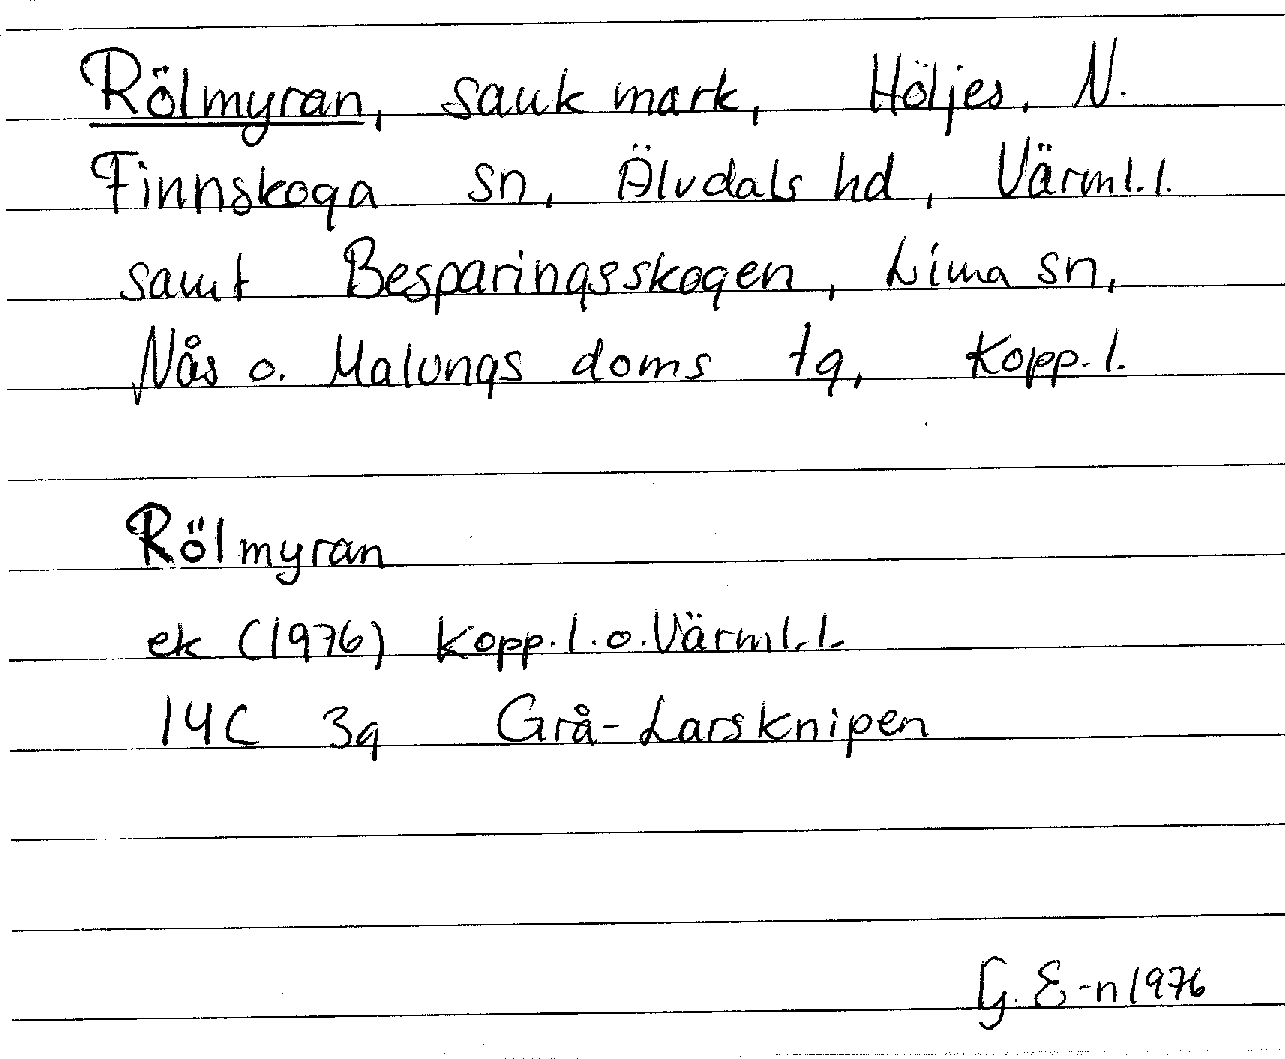 Rölmyran, sank mark, Höljes, N.
Finnskoga sn, Älvdals hd, Värml.l.
samt Besparingsskogen, Lima sn,
Nås o. Malungs doms tg, Kopp.l.
Rölmyran
ek (1976) Kopp.l.o.Värml.l.
14C 3g Grå-Larsknipen
G. E-n 1976